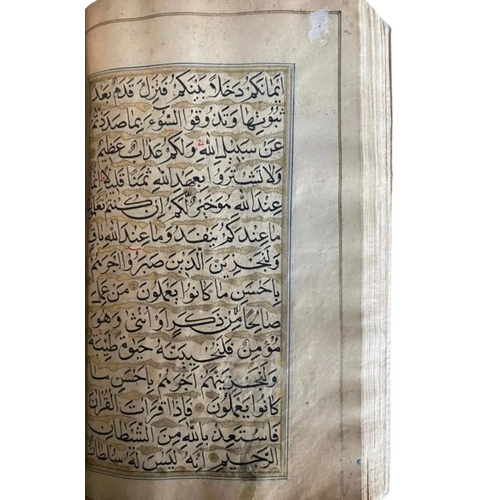 ايمانكم دخلا بينكم فتزل قدم بعد
ثبوتها وتذوقوا السوء بما صددتم
عن سبيل الله ولكم عذاب عظيم
ولا تشتروا بعهد الله ثمنا قليلا انما
عند الله هو خير لكم ان كنتم تعلمو
ما عندكم ينفد وما عند الله باق
ولنجزين الذين صبروا اجرهم
باحسن ما كانوا يعملون من عمل
صالحا من ذكر او انثى وهو
مؤمن فلنحيينه حيوة طيبة
ولنجزينهم اجرهم باحسن ما
كانوا يعملون فاذا قرات القران
فاستعذ بالله من الشيطان
الرجيم انه ليس له سلطان